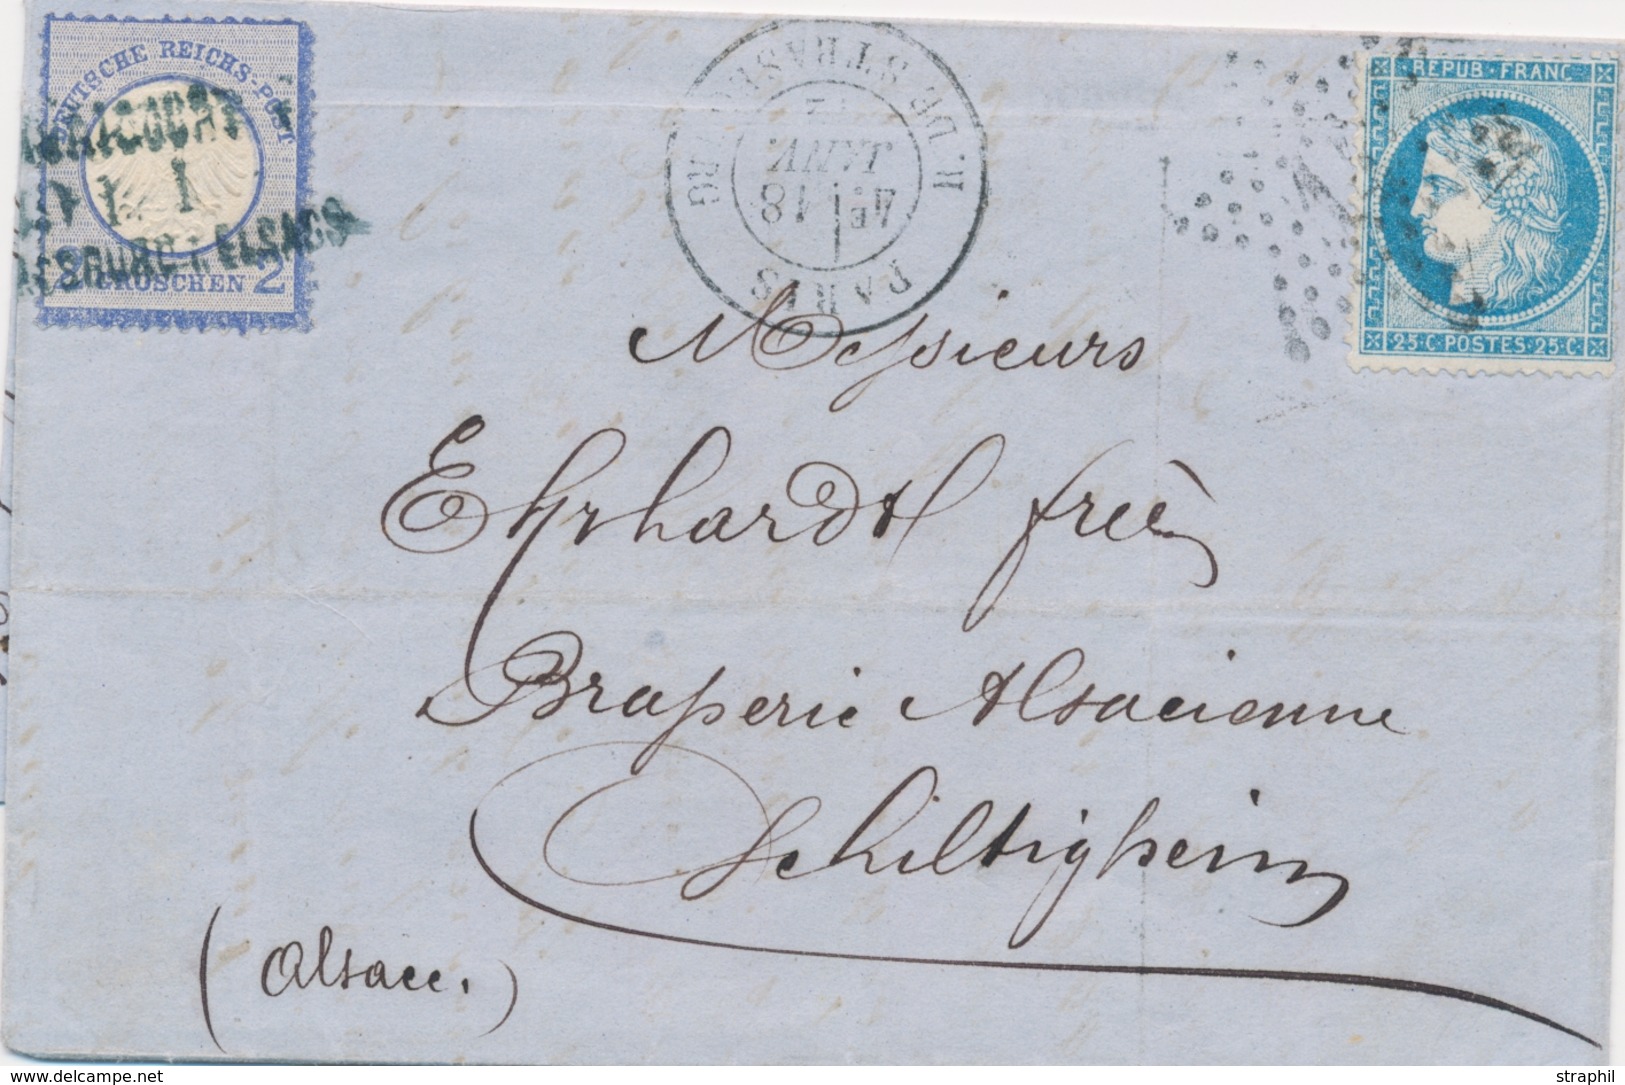 DEUTSCHE REICHS-POST
2 GROSCHEN 2
R. DE STRASBOURG
4E 18
JANV.
PARIS
REPUB · FRANC
25 · C · POSTES · 25 · C
Messieurs
Ehrhardt frères
Brasserie Alsacienne
Schiltigheim
(Alsace.)
www.delcampe.net
straphil